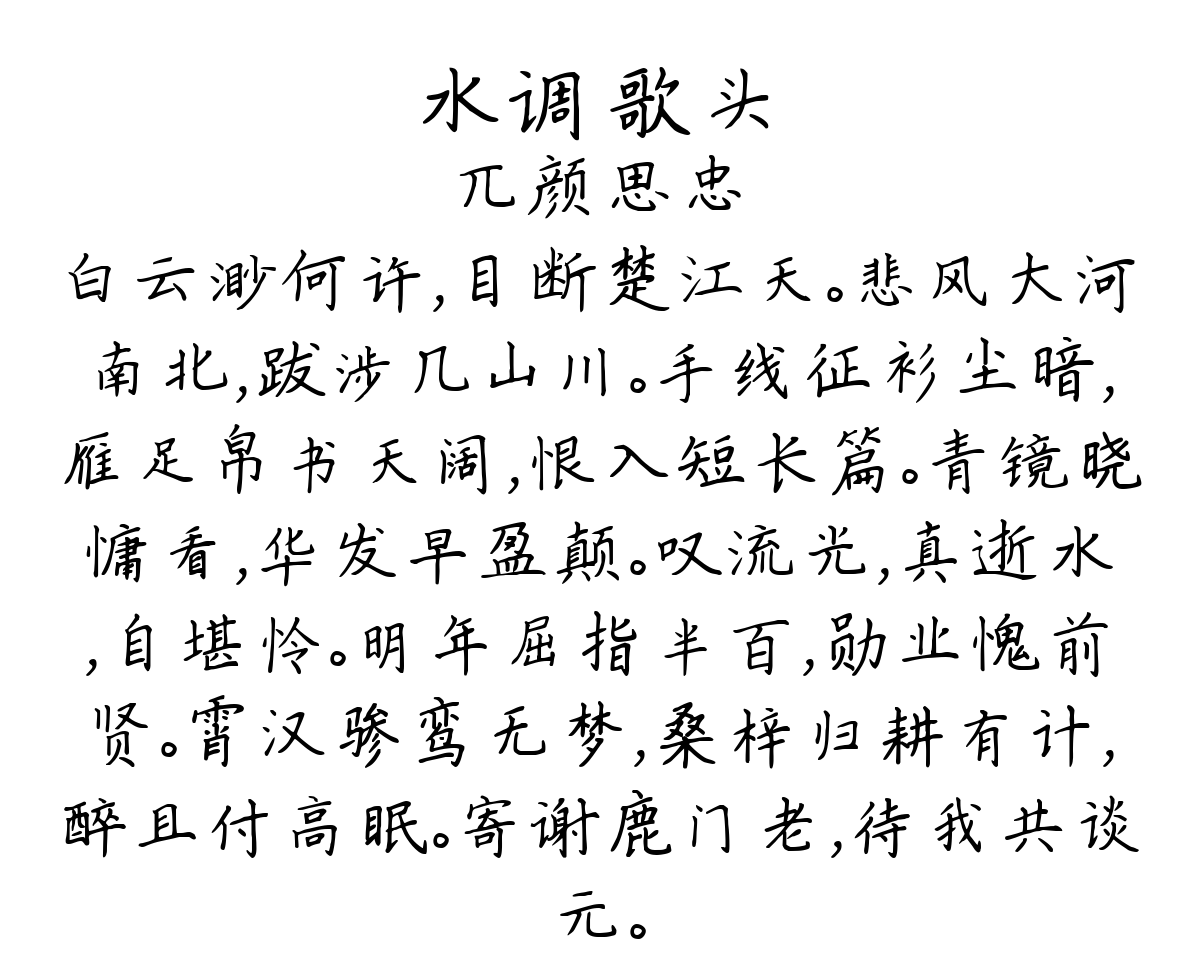 水调歌头
兀颜思忠
白云渺何许,目断楚江天。悲风大河
南北,跋涉几山川。手线征衫尘暗,
雁足帛书天阔,恨入短长篇。青镜晓
慵看,华发早盈颠。叹流光,真逝水
,自堪怜。明年屈指半百,勋业愧前
贤。霄汉骖鸾无梦,桑梓归耕有计,
醉且付高眠。寄谢鹿门老,待我共谈
元。